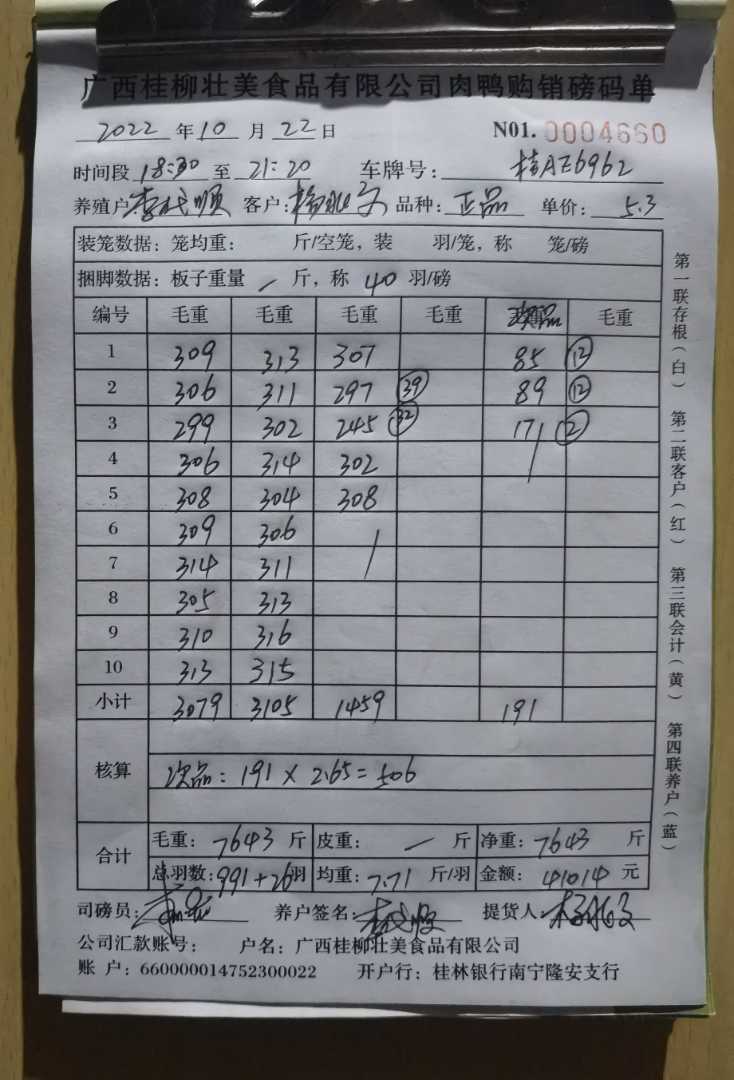 广西桂柳壮美食品有限公司肉鸭购销磅码单
2022 年 10 月 22 日 N01. 0004660
时间段 18:30 至 21:20 车牌号: 桂AE6962
养殖户: 李代顺 客户: 品种: 正品 单价: 5.3
装笼数据: 笼均重: 斤/空笼, 装 羽/笼, 称 笼/磅
捆脚数据: 板子重量 / 斤, 称 40 羽/磅
编号 毛重 毛重 毛重 毛重 次品 毛重
1 309 313 307 85 12
2 306 311 297 39 89 12
3 299 302 245 32 17 2
4 306 314 302
5 308 304 308
6 309 306
7 314 311
8 305 313
9 310 316
10 313 315
小计 3079 3105 1459 191
核算 次品: 191 × 2.65 = 506
合计 毛重: 7643 斤 皮重: — 斤 净重: 7643 斤
总羽数: 991+26 羽 均重: 7.71 斤/羽 金额: 41014 元
司磅员: 养户签名: 李代顺 提货人:
公司汇款账号: 户名: 广西桂柳壮美食品有限公司
账 户: 660000014752300022 开户行: 桂林银行南宁隆安支行
第一联存根(白) 第二联客户(红) 第三联会计(黄) 第四联养户(蓝)